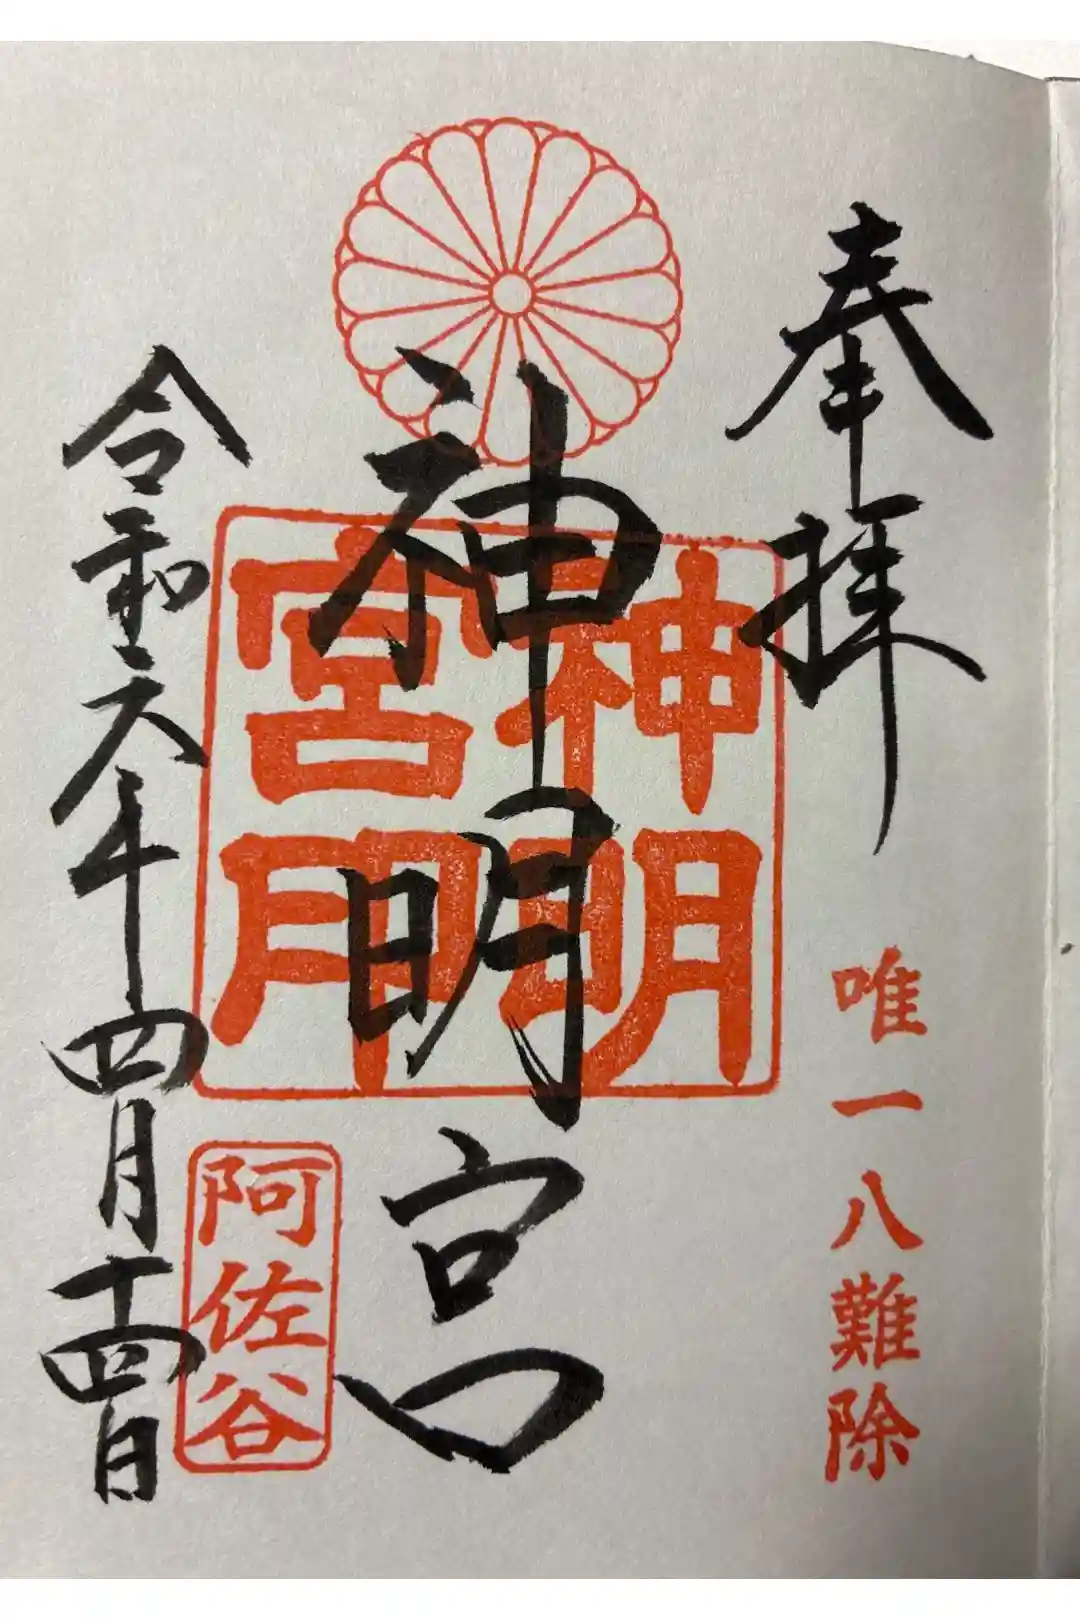 奉拝
唯一八難除
神明宮
神明
宮印
阿佐谷
令和六年四月十四日